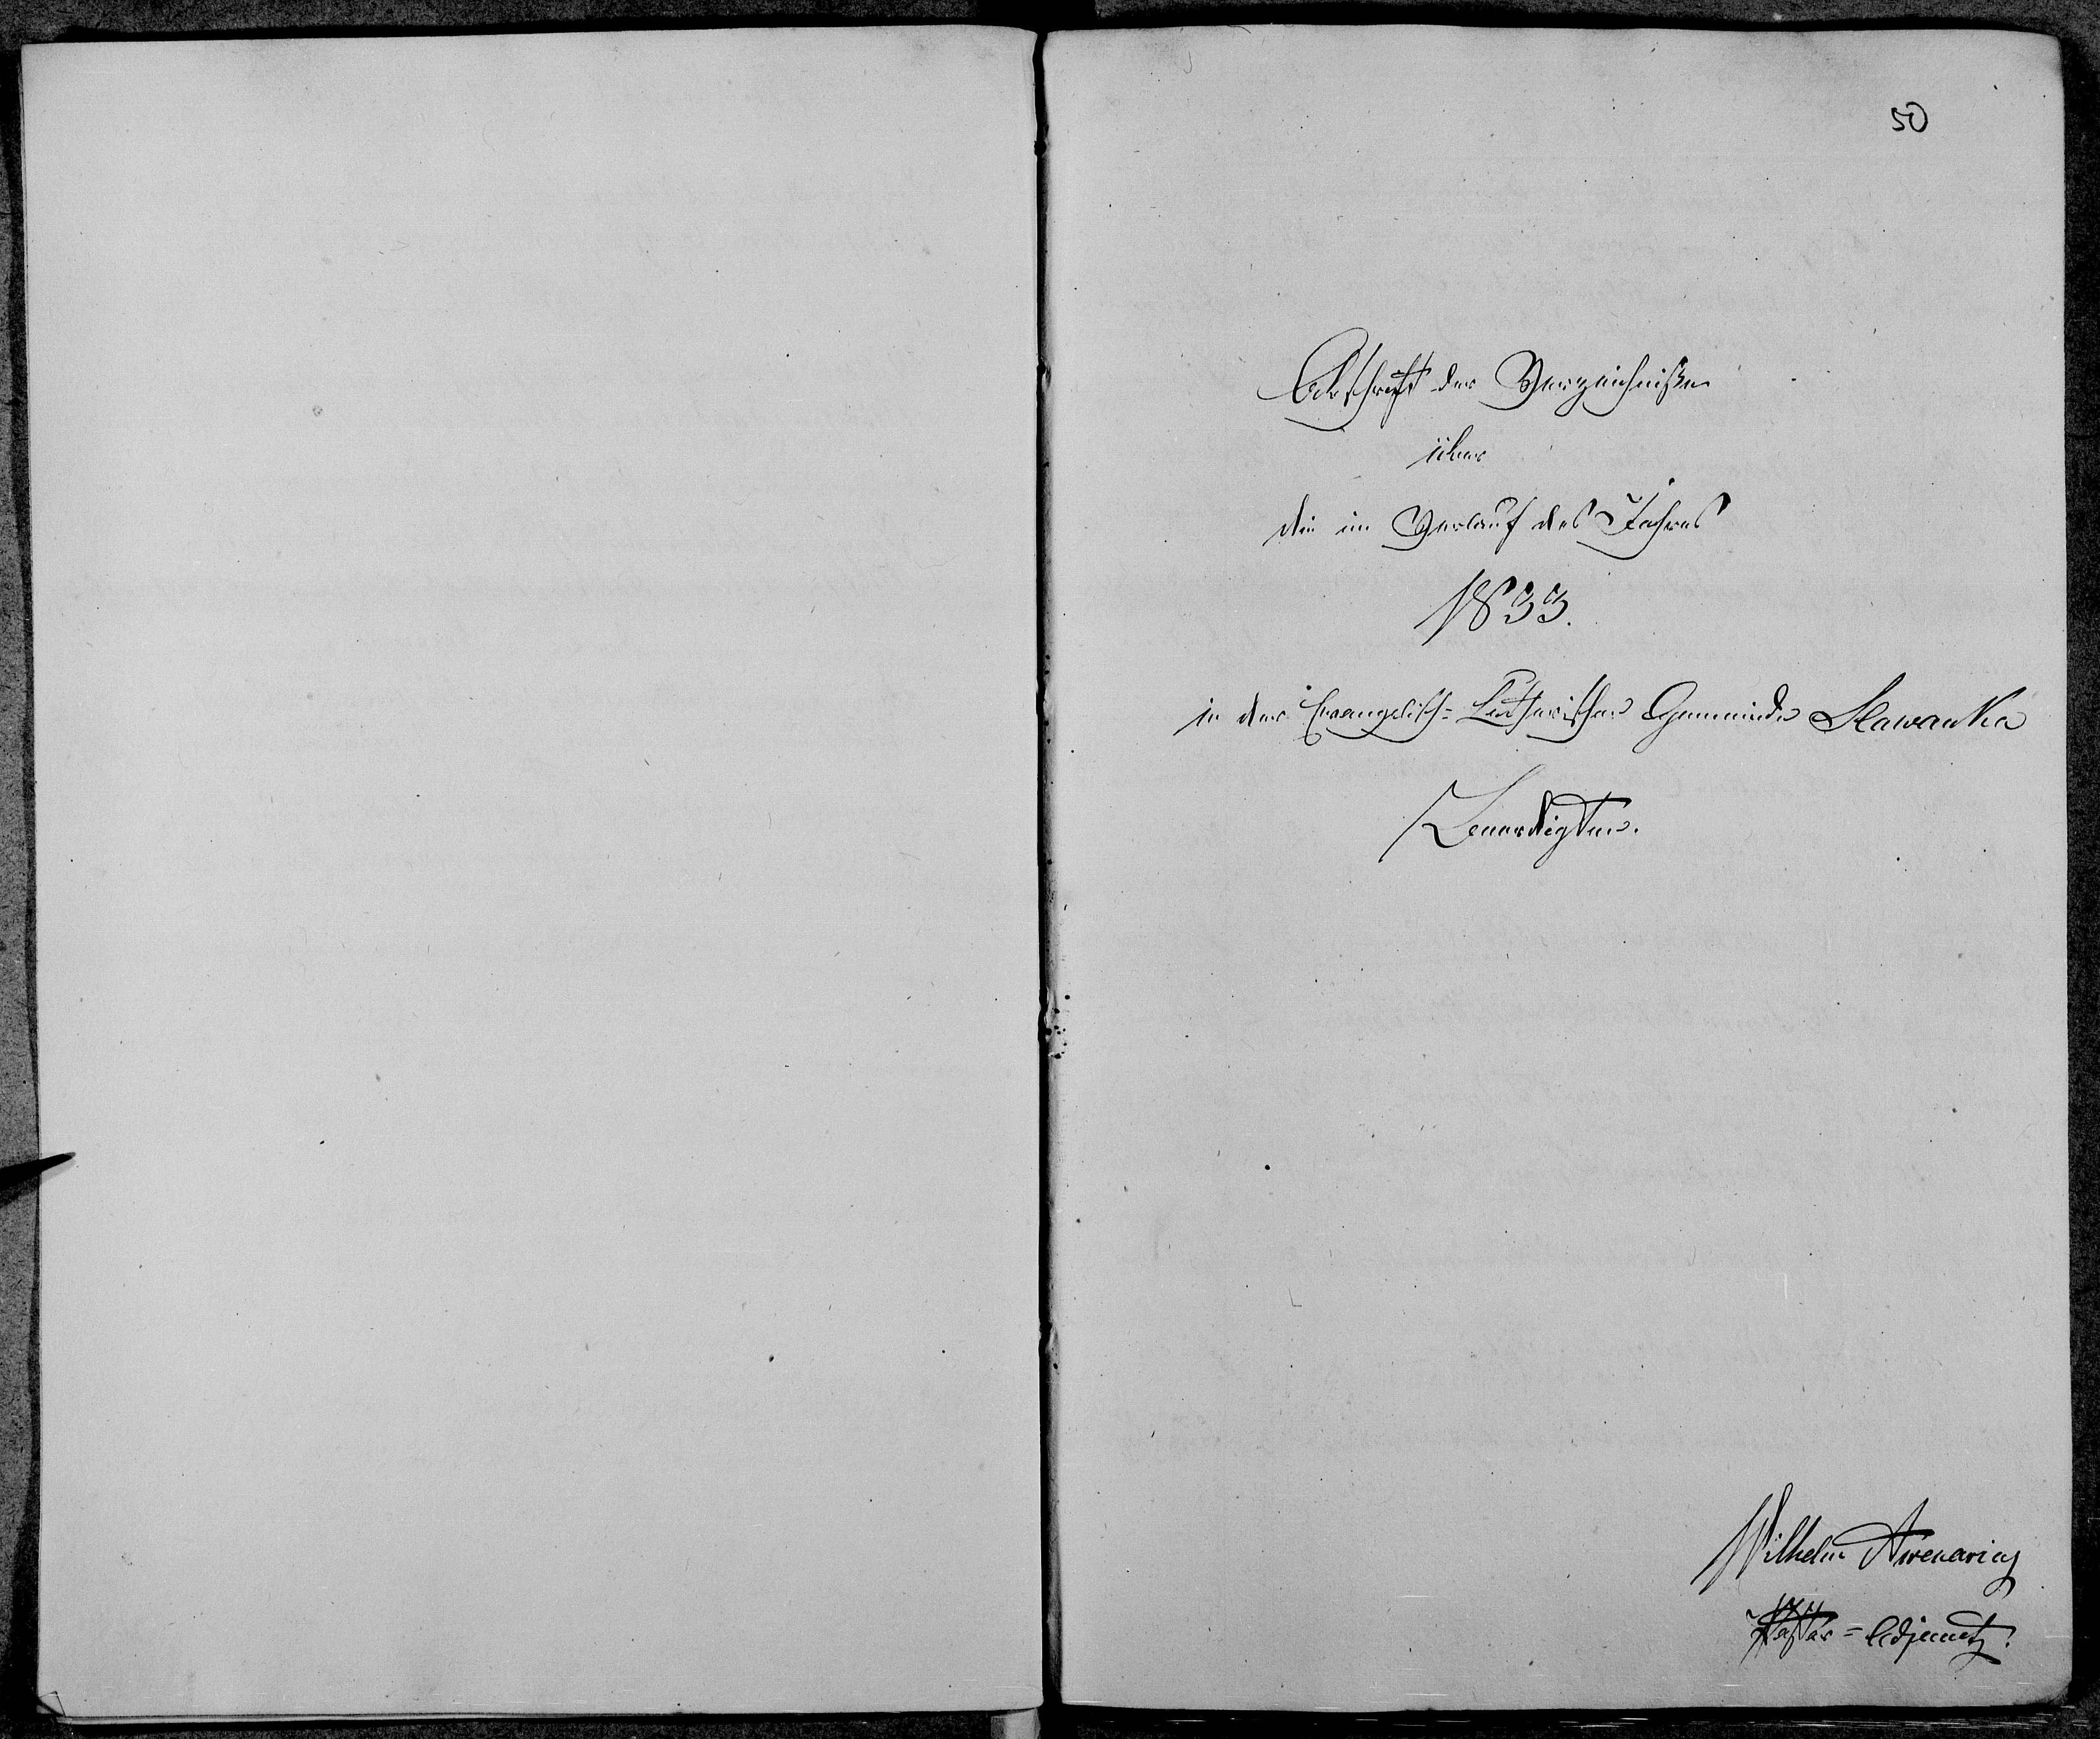 50
Abschrift der Verzeichniße
über
die im Verlauf des Jahres
1833.
in der Evangelisch=Lutherischen Gemeinde Slawanka
Beerdigten.
Wilhelm Avenarius
Pastor=Adjunct.